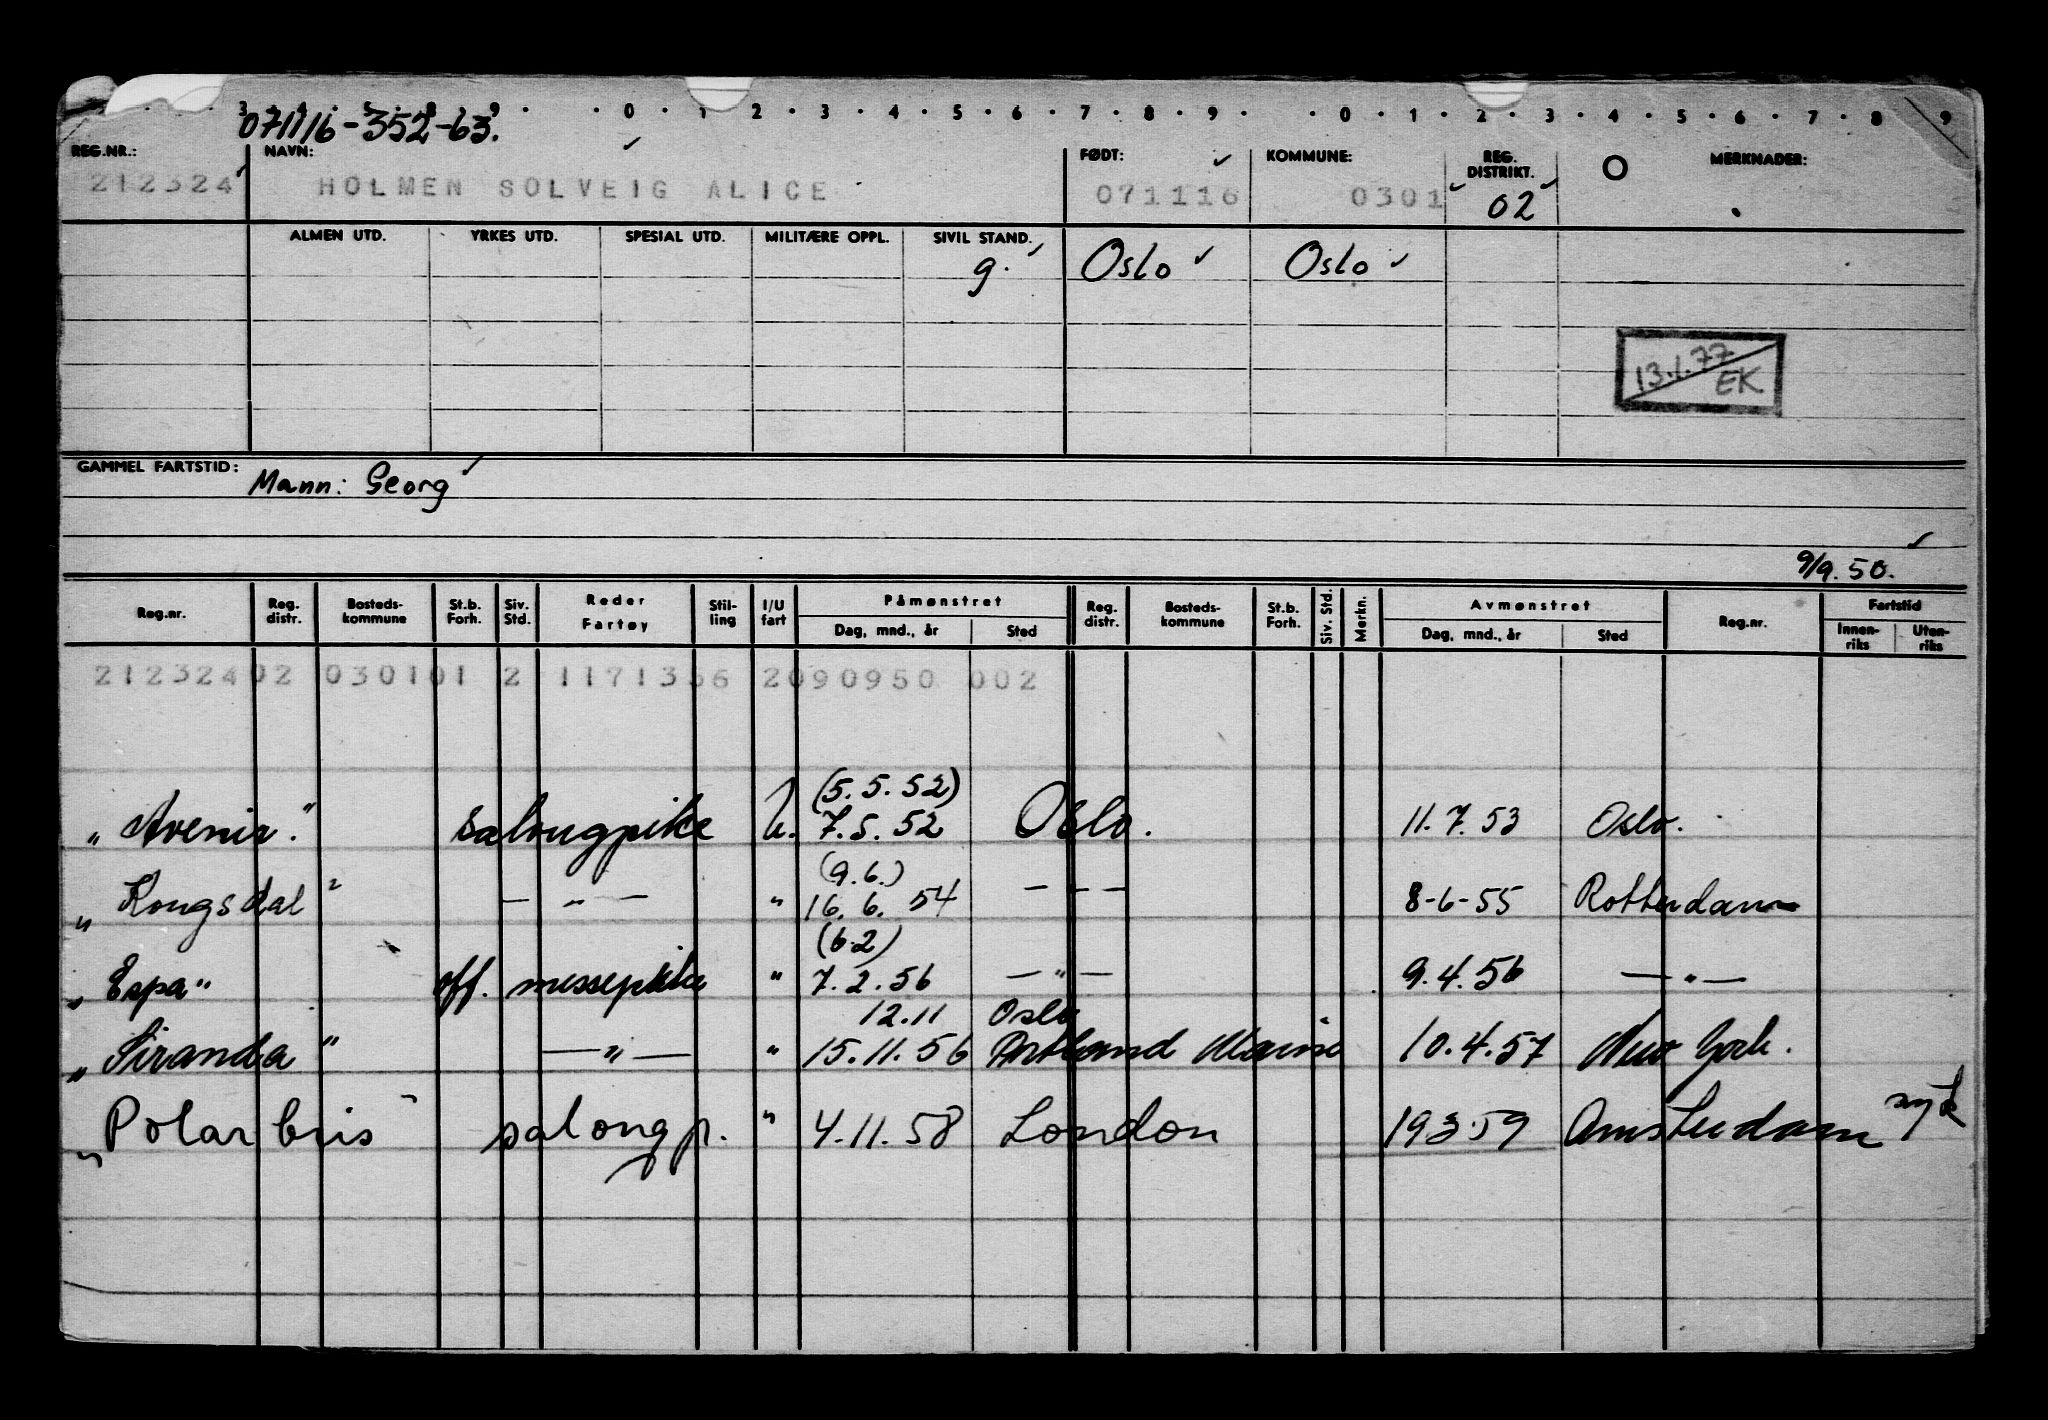 3 4 5 6 7 8 9 0 1 2 3 4 5 6 7 8 9 0 1 2 3 4 5 6 7 8 9
071116-352-63.
REG.NR.: NAVN: FØDT: KOMMUNE: REG. DISTRIKT. O MERKNADER:
212324 HOLMEN SOLVEIG ALICE 071116 0301 02
ALMEN UTD. YRKES UTD. SPESIAL UTD. MILITÆRE OPPL. SIVIL STAND.
g. Oslo Oslo
13.1.77
EK
GAMMEL FARTSTID: Mann: Georg
9/9.50.
Reg.nr. Reg. distr. Bosteds-kommune St.b. Forh. Siv. Std. Reder Fartøy Stil-ling I/U fart Påmønstret Dag, mnd., år Sted Reg. distr. Bosteds-kommune St.b. Forh. Siv. Std. Merkn. Avmønstret Dag, mnd., år Sted Reg.nr. Fartstid Innen-riks Uten-riks
212324 02 0301 01 2 1171356 2 090950 002
(5.5.52)
"Avenir." salongpike U. 7.5.52 Oslo. 11.7.53 Oslo.
(9.6.)
"Kongsdal" — " — " 16.6.54 — " — 8-6-55 Rotterdam
(6.2)
"Espa" off. messepike " 7.2.56 — " — 9.4.56 — " —
12.11 Oslo
"Siranda" — " — " 15.11.56 Portland Maine 10.4.57 New York.
"Polarbris" salongp. " 4.11.58 London 19.3.59 Amsterdam syk